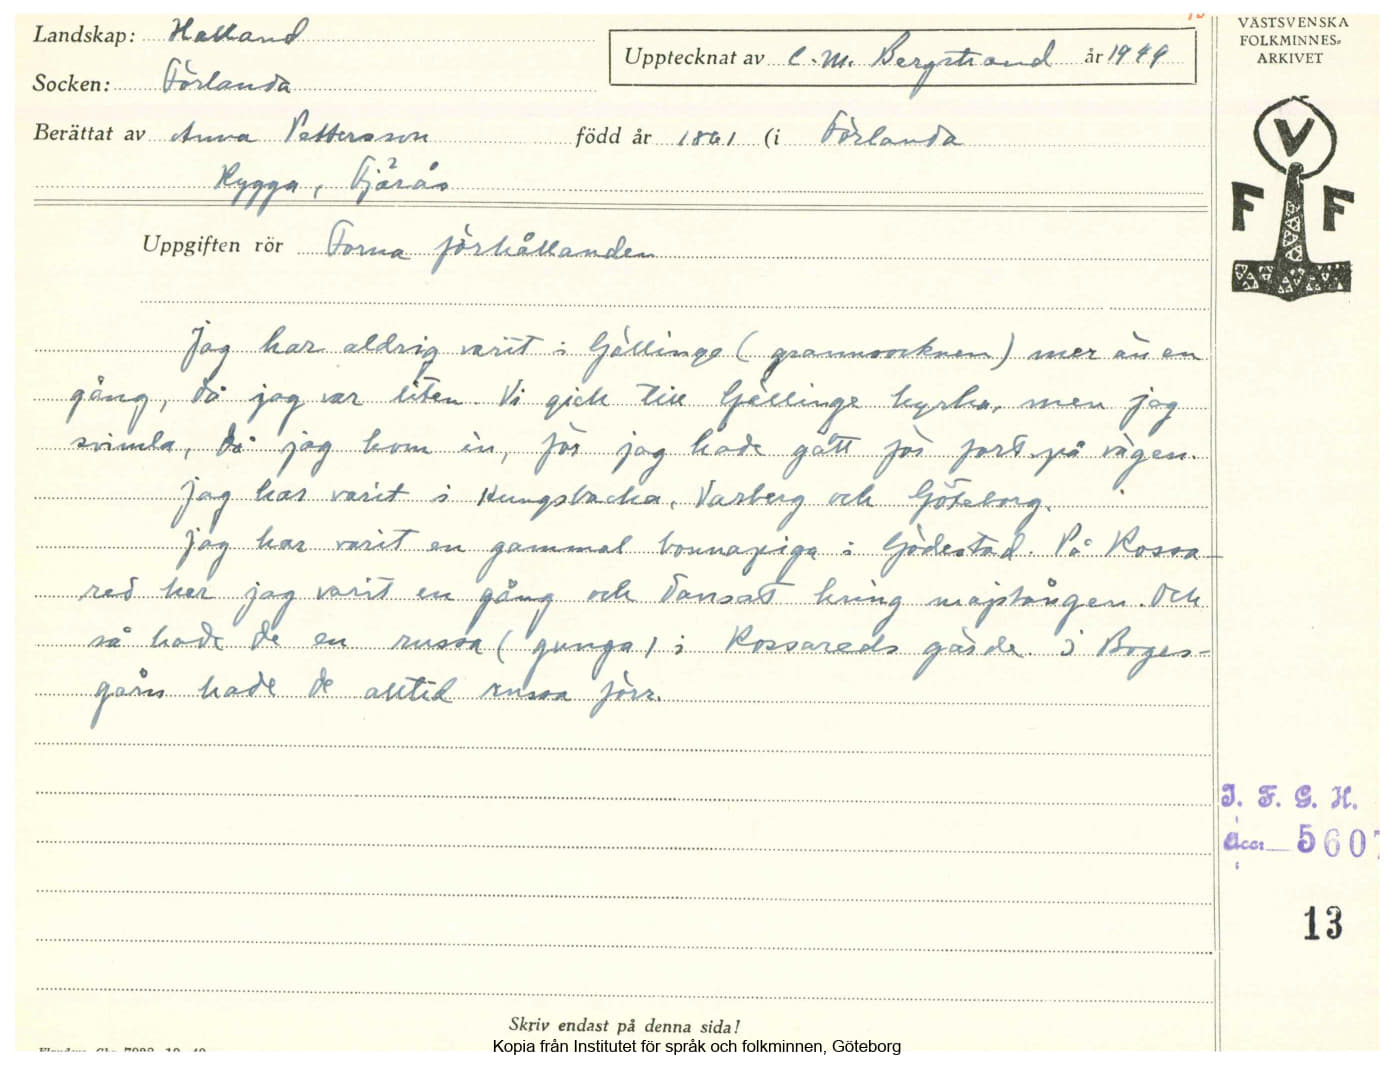 Landskap: Halland
Socken: Förlanda
Upptecknat av C. M. Bergstrand år 1949
Berättat av Anna Pettersson född år 1861 (i Förlanda
Rygga, Fjärås
Uppgiften rör Forna förhållanden
Jag har aldrig varit i Gällinge (grannsocknen) mer än en
gång, då jag var liten. Vi gick till Gällinge kyrka, men jag
svimla, då jag kom in, för jag hade gått för fort på vägen.
Jag har varit i Kungsbacka, Varberg och Göteborg.
Jag har varit en gammal bonnapiga i Gödestad. På Rossa-
red har jag varit en gång och dansat kring majstången. Och
så hade de en russa (gunga) i Rossareds gärde. I Boges-
gårn hade de alltid russa förr.
Skriv endast på denna sida!
Kopia från Institutet för språk och folkminnen, Göteborg
VÄSTSVENSKA
FOLKMINNES-
ARKIVET
V
F F
I. F. G. H.
acc: 5607
13